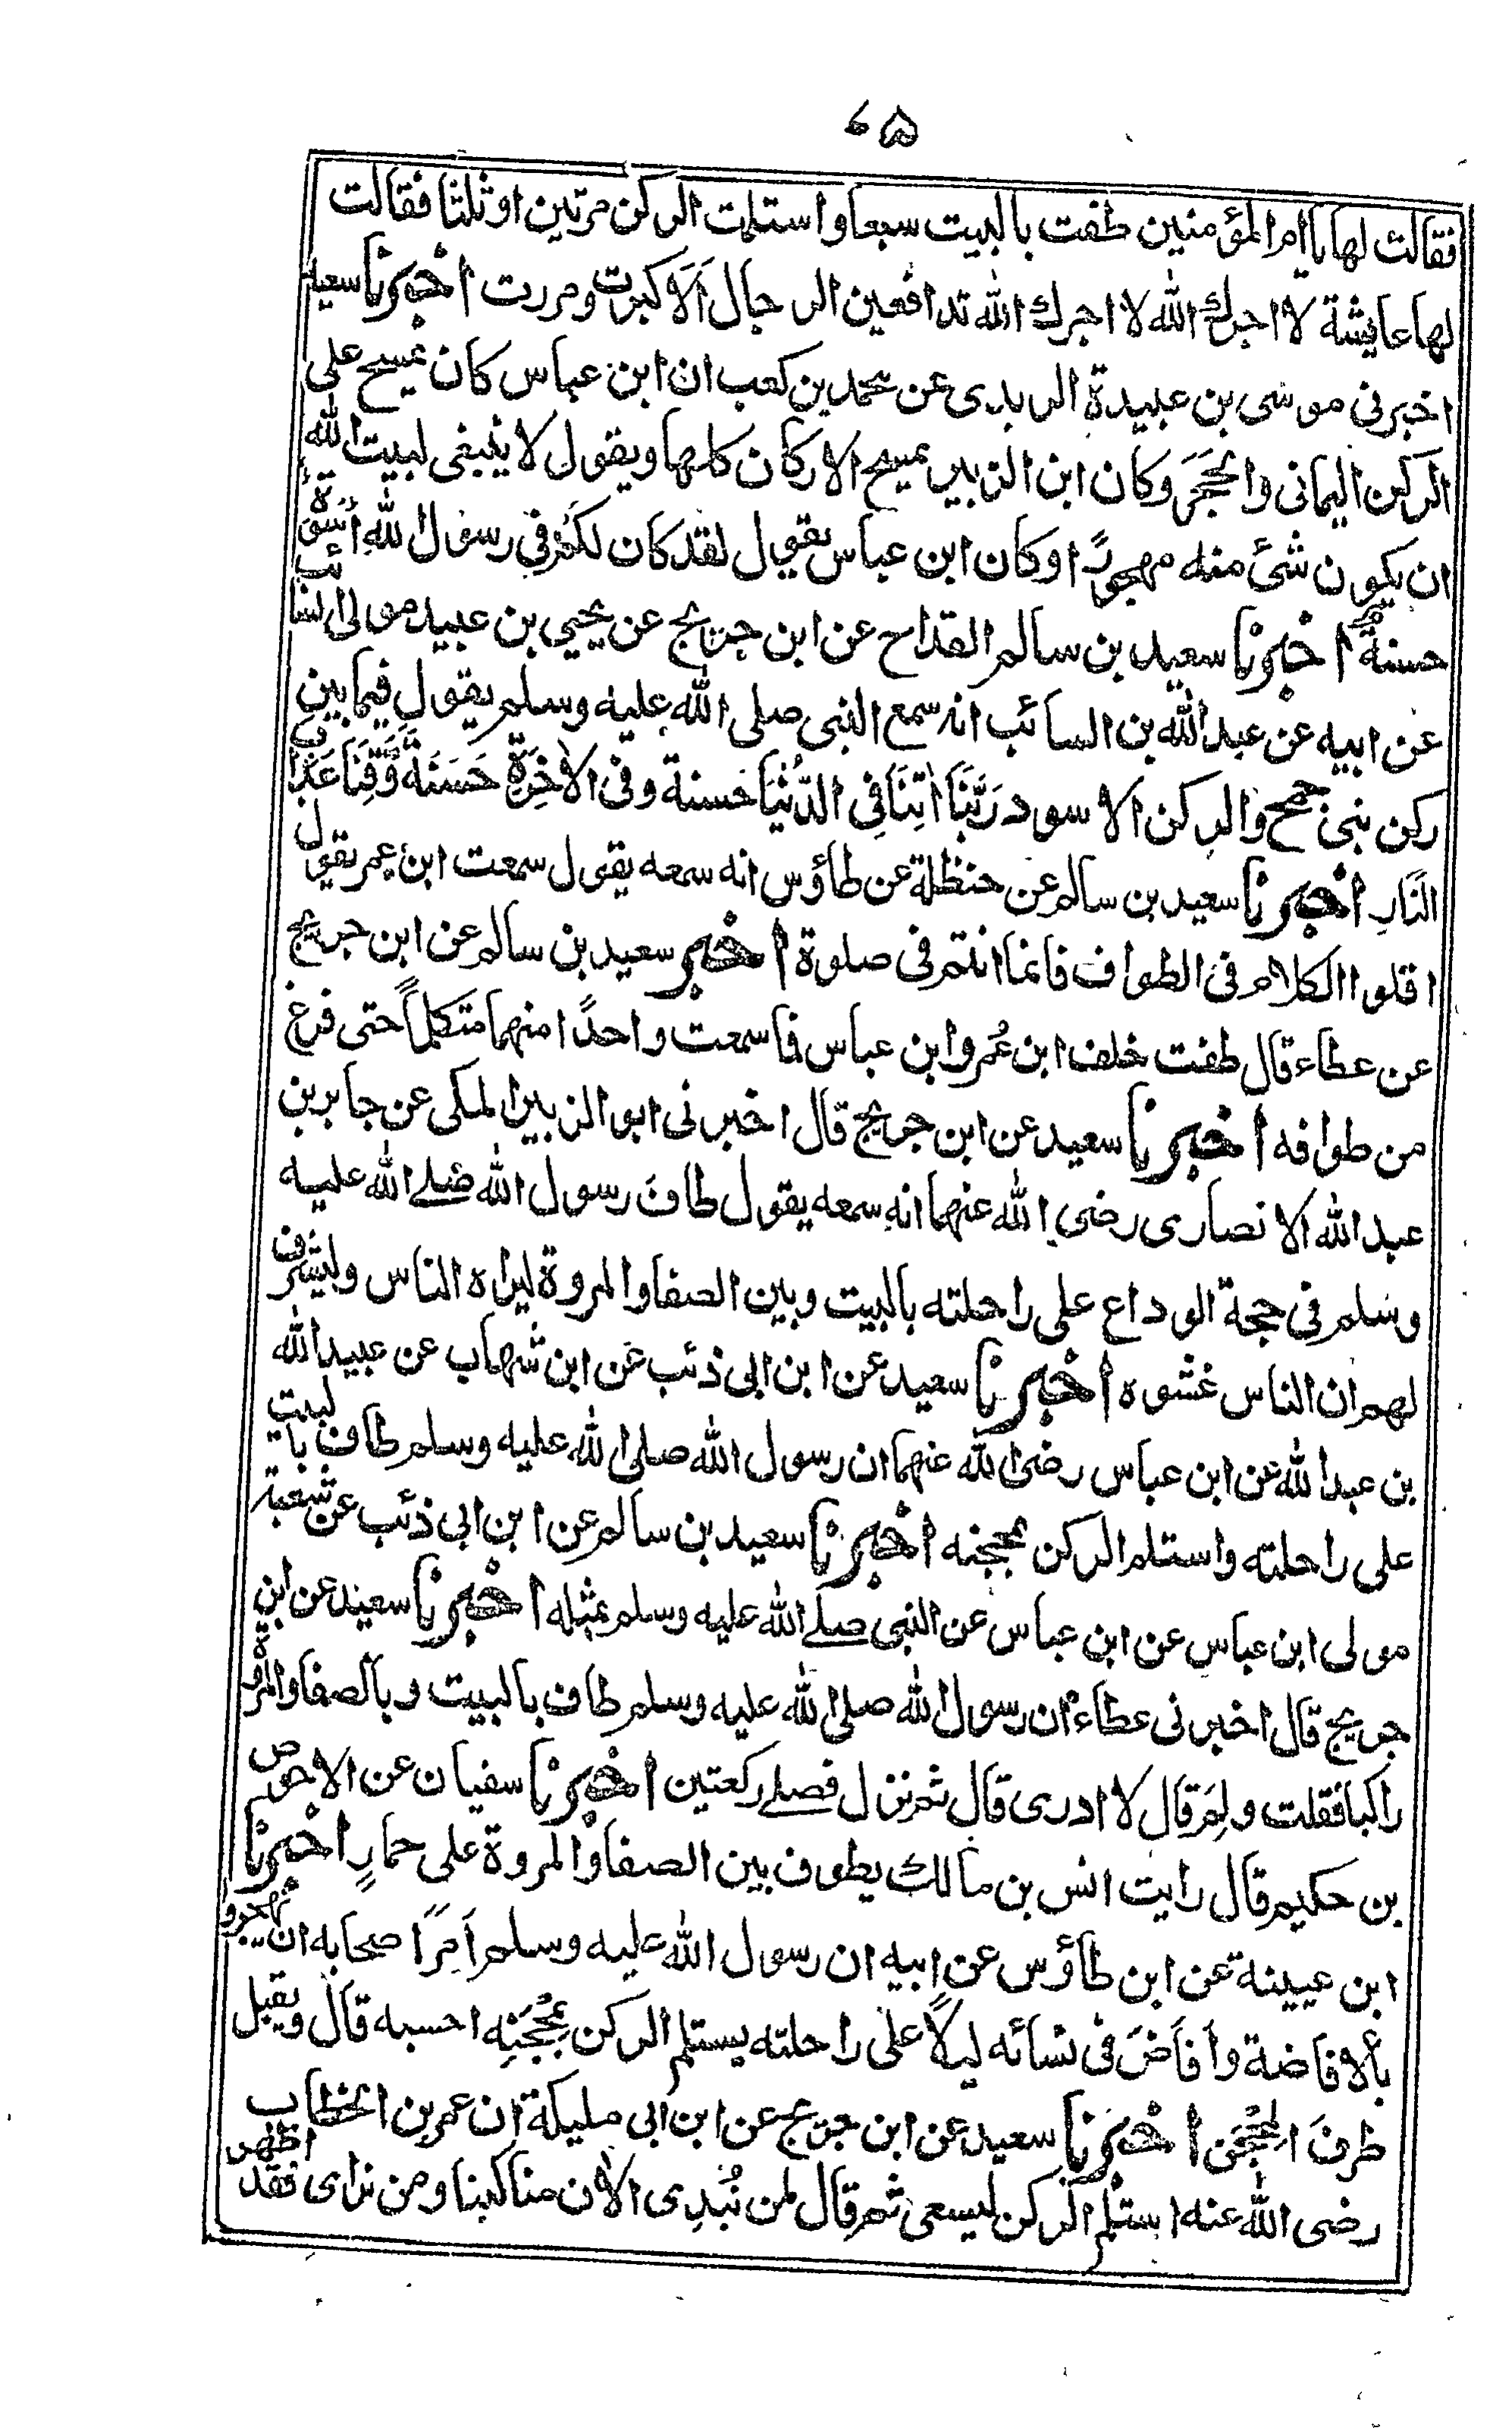 ٧٥
فقالت لها يا ام المؤمنين طفت بالبيت سبعا واستلمت الركن مرتين او ثلثا فقالت
لها عايشة لا اجرك الله لا اجرك الله تدافعين الرجال اَلَا كبرت ومررت اخبرنا سعيد
اخبرنى موسى بن عبيدة الربدى عن محمد بن كعب ان ابن عباس كان يمسح على
الركن اليمانى والحَجَرَ وكان ابن الزبير يمسح الاركان كلها ويقول لا ينبغى لبيت الله
ان يكون شئ منه مهجورًا وكان ابن عباس يقول لقد كان لكم فى رسول الله اُسْوَةٌ
حسنةٌ اخبرنا سعيد بن سالم القداح عن ابن جريج عن يحيى بن عبيد مولى السائب
عن ابيه عن عبد الله بن السائب انه سمع النبى صلى الله عليه وسلم يقول فيما بين
ركن بنى جمح والركن الاسود رَبَّنَا اٰتِنَا فِى الدُّنْيَا حسنة وفى الاٰخِرَةِ حَسَنَةً وَّقِنَا عَذَابَ
النَّارِ اخبرنا سعيد بن سالم عن حنظلة عن طاؤس انه سمعه يقول سمعت ابن عمر يقول
اقلوا الكلام فى الطواف فانما انتم فى صلوة اخبر سعيد بن سالم عن ابن جريج
عن عطاء قال طفت خلف ابن عُمر وابن عباس فما سمعت واحدًا منهما متكلماً حتى فرغ
من طوافه اخبرنا سعيد عن ابن جريج قال اخبرنى ابو الزبير المكى عن جابر بن
عبد الله الانصارى رضى الله عنهما انه سمعه يقول طافَ رسول الله صلى الله عليه
وسلم فى حجة الوداع على راحلته بالبيت وبين الصفا والمروة ليراه الناس وليشرف
لهم ان الناس غشوه اخبرنا سعيد عن ابن ابى ذئب عن ابن شهاب عن عبيد الله
بن عبد الله عن ابن عباس رضى الله عنهما ان رسول الله صلى الله عليه وسلم طاف بالبيت
على راحلته واستلم الركن بمحجنه اخبرنا سعيد بن سالم عن ابن ابى ذئب عن شعبة
مولى ابن عباس عن ابن عباس عن النبى صلى الله عليه وسلم بمثله اخبرنا سعيد عن ابن
جريج قال اخبرنى عطاء ان رسول الله صلى الله عليه وسلم طاف بالبيت وبالصفا والمروة
راكبا فقلت ولِمَ قال لا ادرى قال ثم نزل فصلى ركعتين اخبرنا سفيان عن الاحوص
بن حكيم قال رايت انس بن مالك يطوف بين الصفا والمروة على حمارٍ اخبرنا
ابن عيينة عن ابن طاؤس عن ابيه ان رسول الله عليه وسلم اَمَرَ اصحابه ان يهجروا
بالافاضة وافَاضَ فى نسائه ليلاً على راحلته يستلم الركن بمِحْجَنِه احسبه قال ويقبل
طرفَ المِحْجَن اخبرنا سعيد عن ابن جريج عن ابن ابى مليكة ان عمر بن الخطاب
رضى الله عنه استلم الركن ليسعى ثم قال لمن نُبْدِى الاٰن مناكبنا ومن نراى فقد اظهر